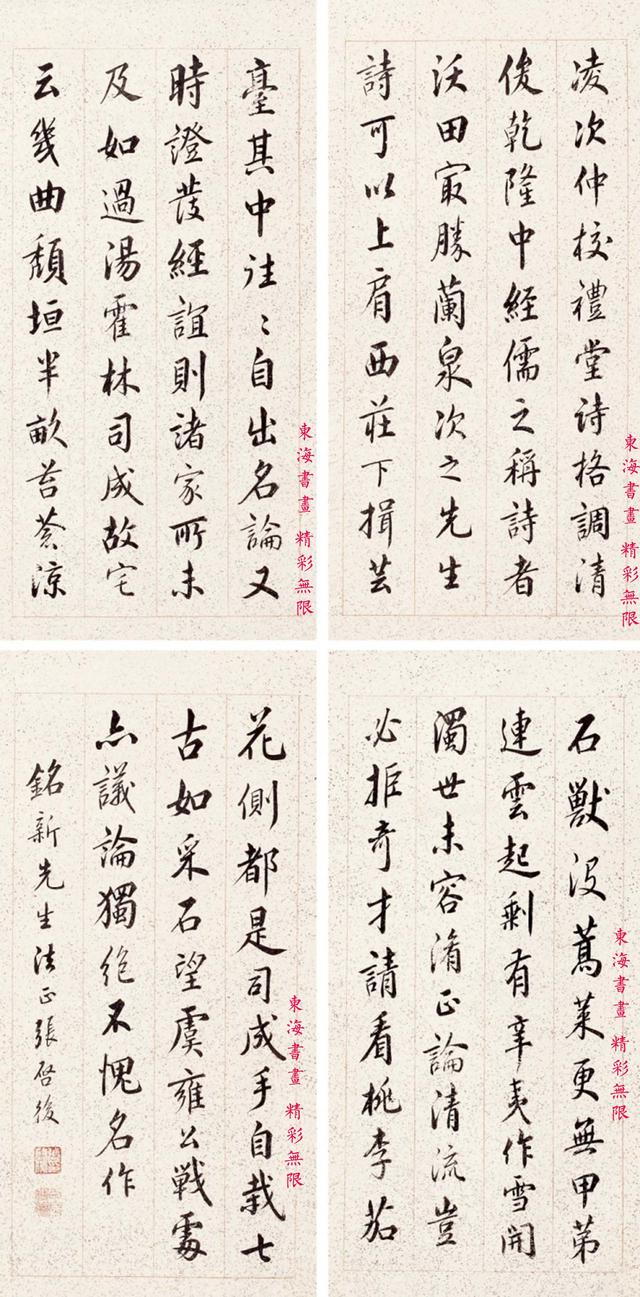 凌次仲校禮堂詩格調清
俊乾隆中經儒之稱詩者
沃田冣勝蘭泉次之先生
詩可以上肩西莊下揖芸
東海書畫 精彩無限
臺其中往々自出名論又
時證發經誼則諸家所未
及如過湯霍林司成故宅
云幾曲頹垣半畝苔蒼涼
東海書畫 精彩無限
石獸沒蒿萊更無甲第
連雲起剩有辛夷作雪開
濁世未容淆正論清流豈
必拒奇才請看桃李茄
東海書畫 精彩無限
花側都是司成手自栽七
古如采石望虞雍公戰處
亦議論獨絕不愧名作
銘新先生法正張啓後
東海書畫 精彩無限